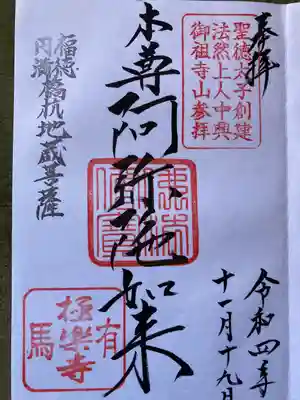 奉拝
聖徳太子創建
法然上人中興
御祖寺山参拝
令和四年
十一月十九日
本尊阿弥陀如来
福徳
円満
橋杭地蔵菩薩
有馬
極樂寺